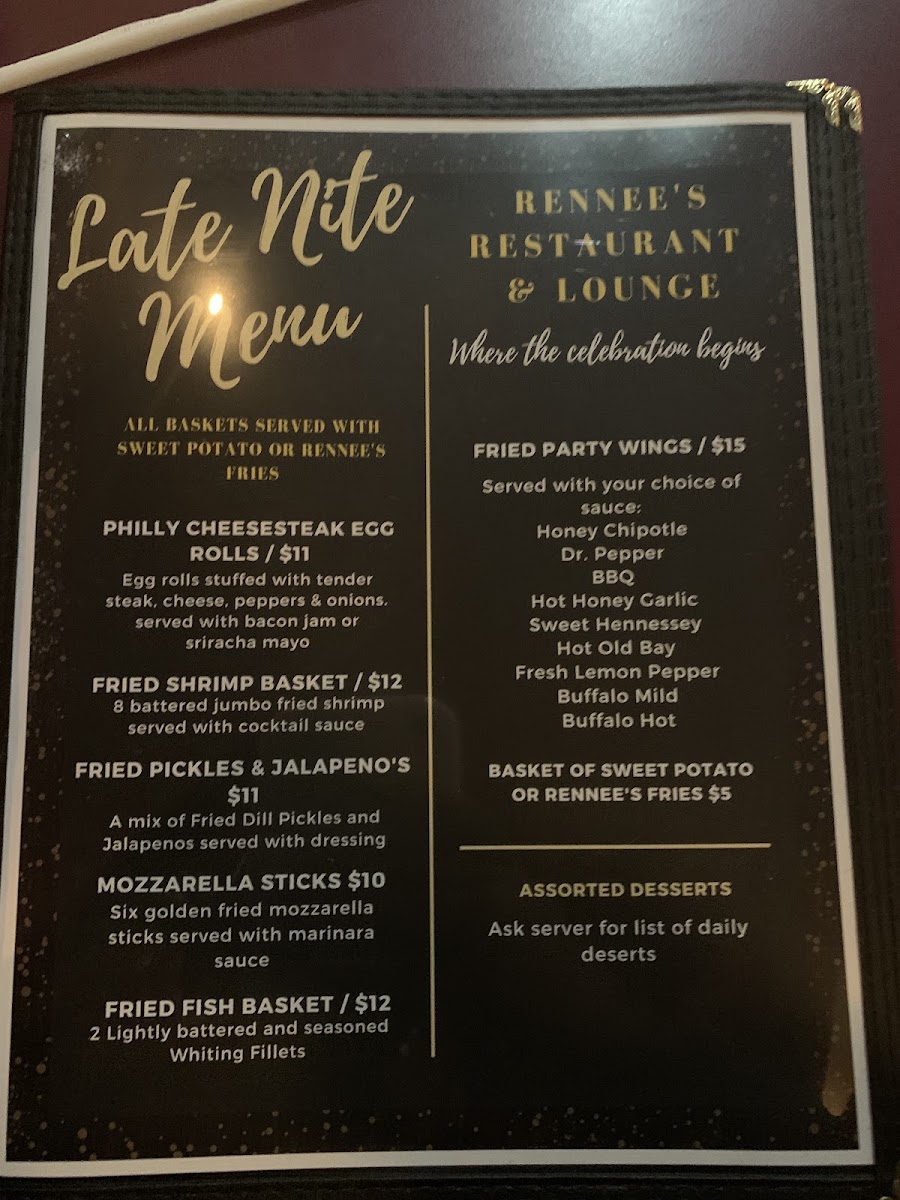 Late Nite
Menu
ALL BASKETS SERVED WITH
SWEET POTATO OR RENNEE'S
FRIES
PHILLY CHEESESTEAK EGG
ROLLS / $11
Egg rolls stuffed with tender
steak, cheese, peppers & onions.
served with bacon jam or
sriracha mayo
FRIED SHRIMP BASKET / $12
8 battered jumbo fried shrimp
served with cocktail sauce
FRIED PICKLES & JALAPENO'S
$11
A mix of Fried Dill Pickles and
Jalapenos served with dressing
MOZZARELLA STICKS $10
Six golden fried mozzarella
sticks served with marinara
sauce
FRIED FISH BASKET / $12
2 Lightly battered and seasoned
Whiting Fillets
RENNEE'S
RESTAURANT
& LOUNGE
Where the celebration begins
FRIED PARTY WINGS / $15
Served with your choice of
sauce:
Honey Chipotle
Dr. Pepper
BBQ
Hot Honey Garlic
Sweet Hennessey
Hot Old Bay
Fresh Lemon Pepper
Buffalo Mild
Buffalo Hot
BASKET OF SWEET POTATO
OR RENNEE'S FRIES $5
ASSORTED DESSERTS
Ask server for list of daily
deserts